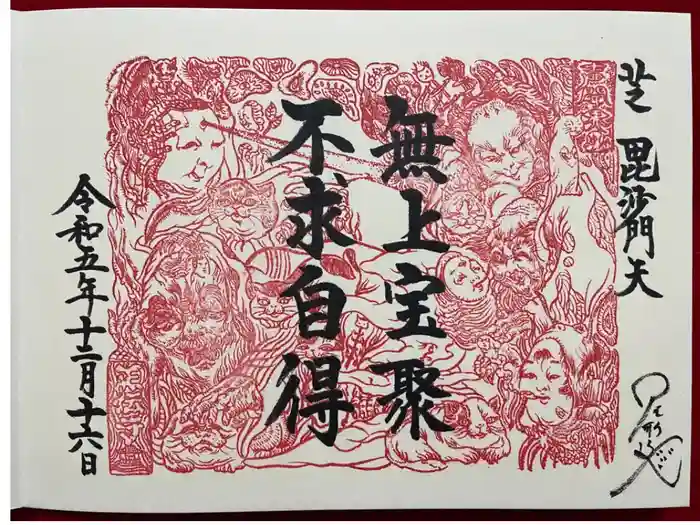 芝 毘沙門天
無上宝聚
不求自得
令和五年十二月十六日